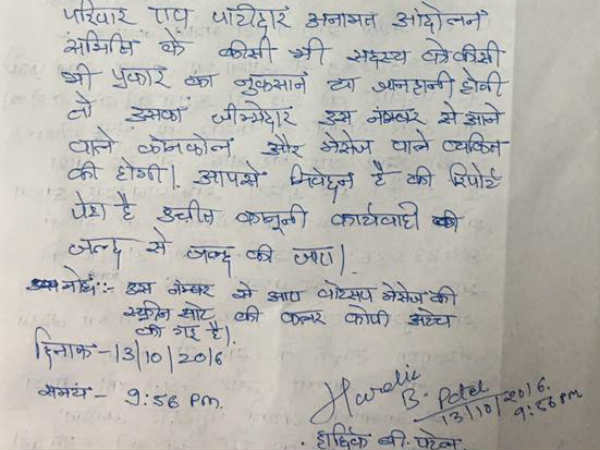 परिवार एवं पाटीदार अनामत आंदोलन
समिति के कीसी भी सदस्य को कीसी
भी प्रकार का नुकसान या जानहानी होवी
तो इसका जीम्मेदार इस नंम्बर से आने
वाले फोनकोल और मेसेज वाले व्यकित
की होगी। आपसे निवेदन है की रिपोर्ट
पेश है उचीत कानूनी कार्यवाही की
जल्द से जल्द की जाए।
नोध:- इस नंम्बर से आए वोटसप मेसेज की
स्क्रीन शोट की कलर कोपी अटेच
की गई है।
दिनाक-13/10/2016
समय- 9:56 pm.
Hardik B. Patel
13/10/2016.
9:56 pm
हार्दिक बी. पटेल